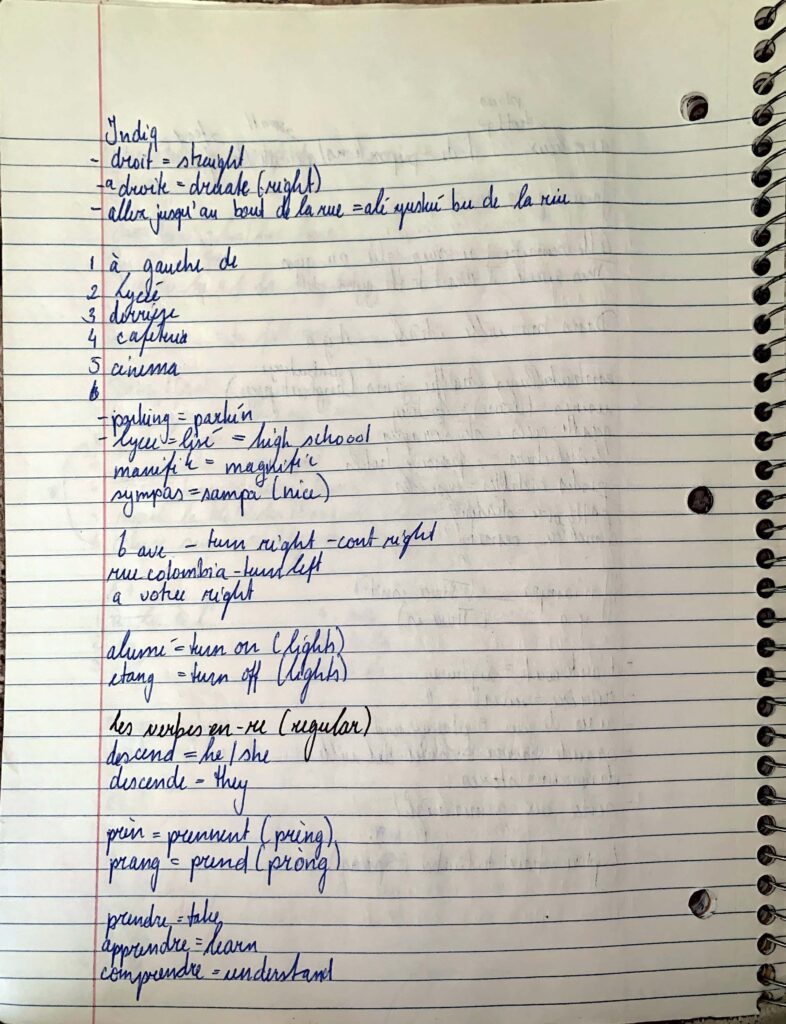 Indiq
- droit = straight
- a droite = druate (right)
- aller jusqu'au bout de la rue = alé yushú bu de la riu
1 à gauche de
2 Lyceé
3 derrière
4 cafeteria
5 cinema
6
- parking = parkín
- lycee = lisé = high schoool
manifi'c = magnifi'c
sympas = sampa (nice)
6 ave - turn right - cont right
rue colombia - turn left
a votre right
alumé = turn on (lights)
etang = turn off (lights)
Les verbes en -re (regular)
descend = he/she
descende = they
prèn = prennent (prèng)
prang = prend (pròng)
prendre = take
apprendre = learn
comprendre = understand